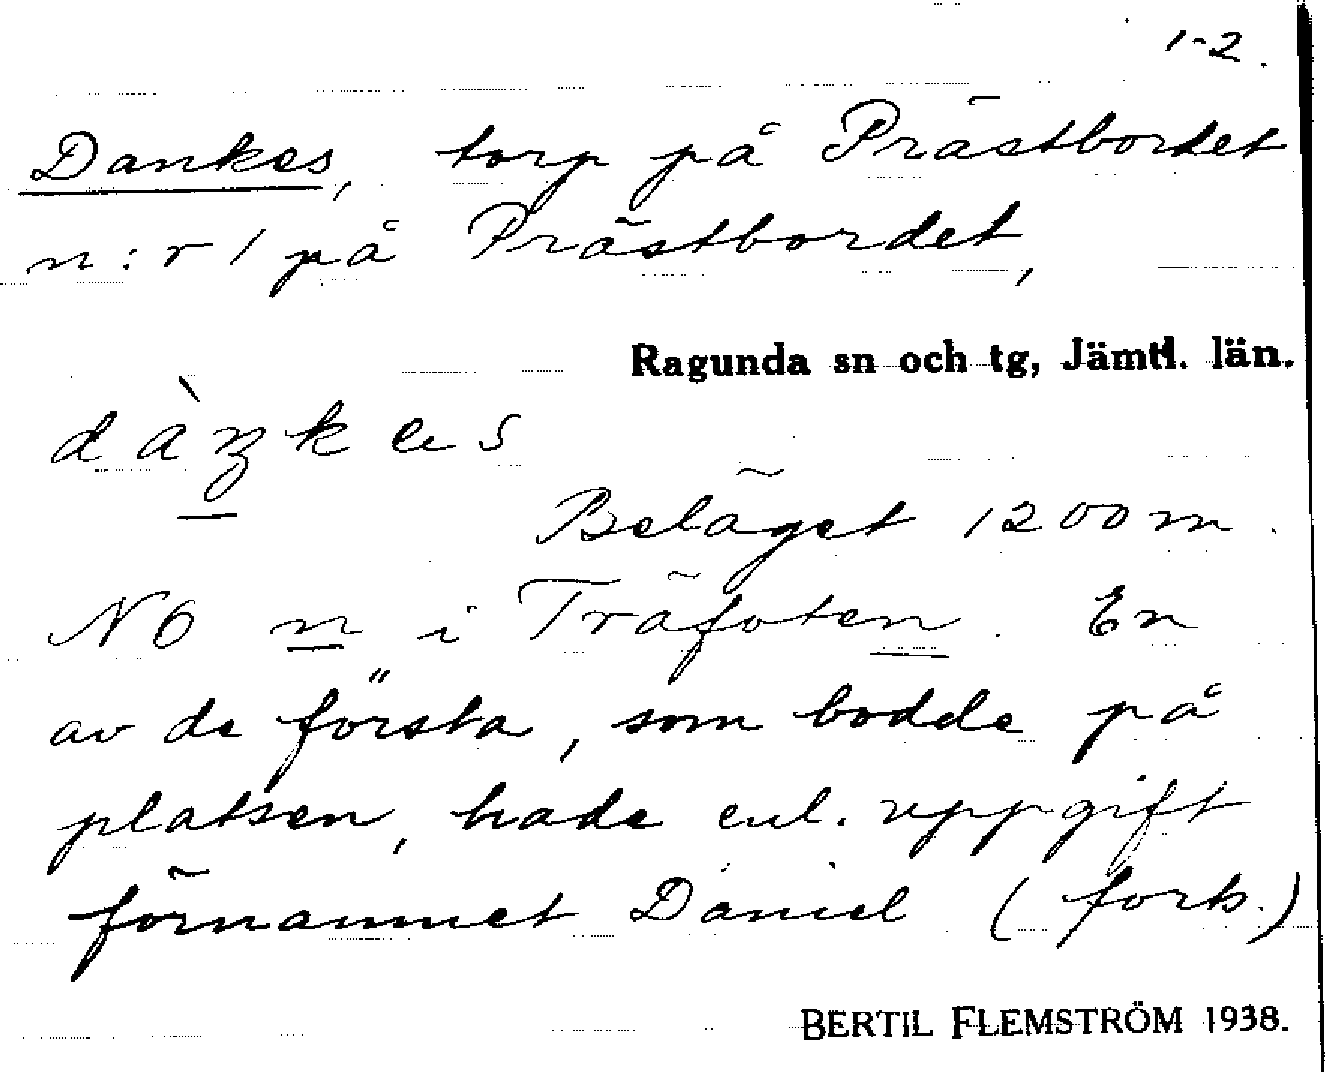 1-2.
Dankes, torp på Prästbordet
n:r 1 på Prästbordet,
Ragunda sn och tg, Jämtl. län.
Beläget 1200 m
NO n i Träfoten. En
av de första, som bodde på
platsen, hade enl. uppgift
förnamnet Daniel (forts.)
BERTIL FLEMSTRÖM 1938.